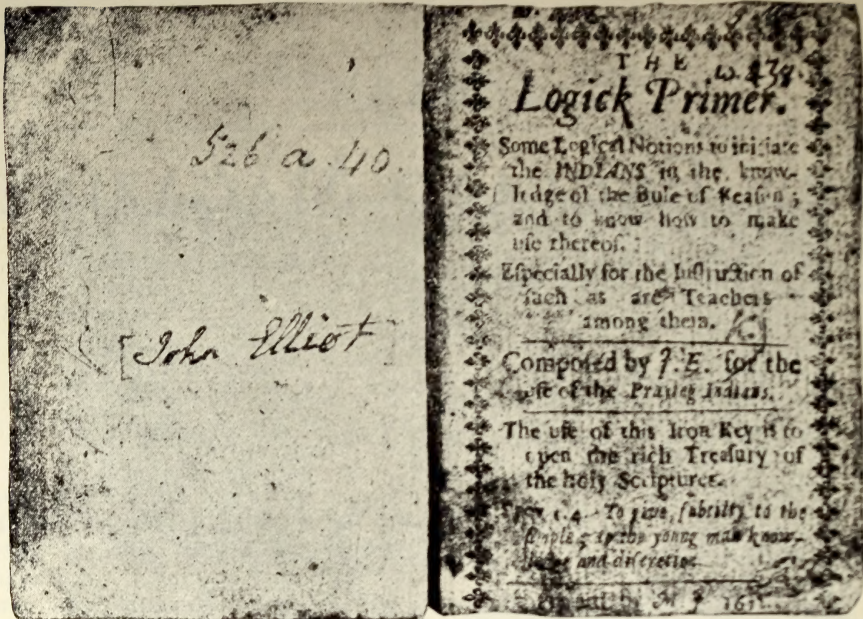 526 a 40.
[John Elliot]
THE
Logick Primer.
Some Logical Notions to initiate
the INDIANS in the know-
ledge of the Rule of Reason;
and to know how to make
use thereof.
Especially for the Instruction of
such as are Teachers
among them.
Composed by J. E. for the
use of the Praying Indians.
The use of this Iron Key is to
open the rich Treasury of
the holy Scriptures.
1. 4. To give subtilty to the
simple, to the young man know-
ledge and discretion.
by M. J.